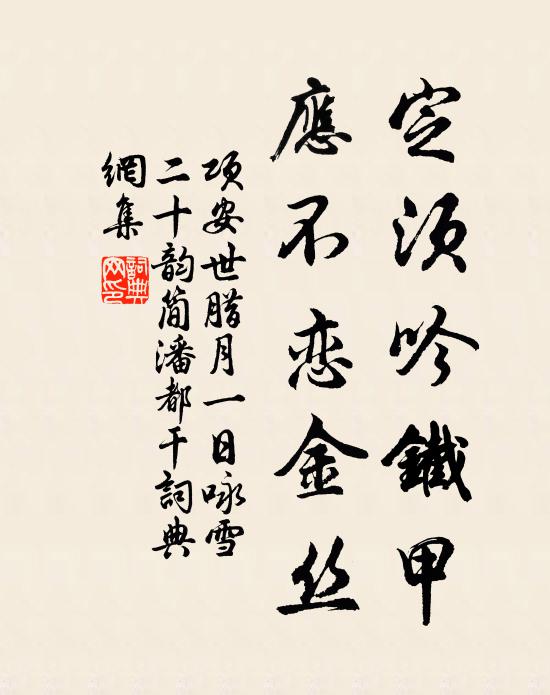 定须吟鐵甲
應不恋金丝
项安世腊月一日咏雪
二十韵简潘都干詞典
網集
詞典網印